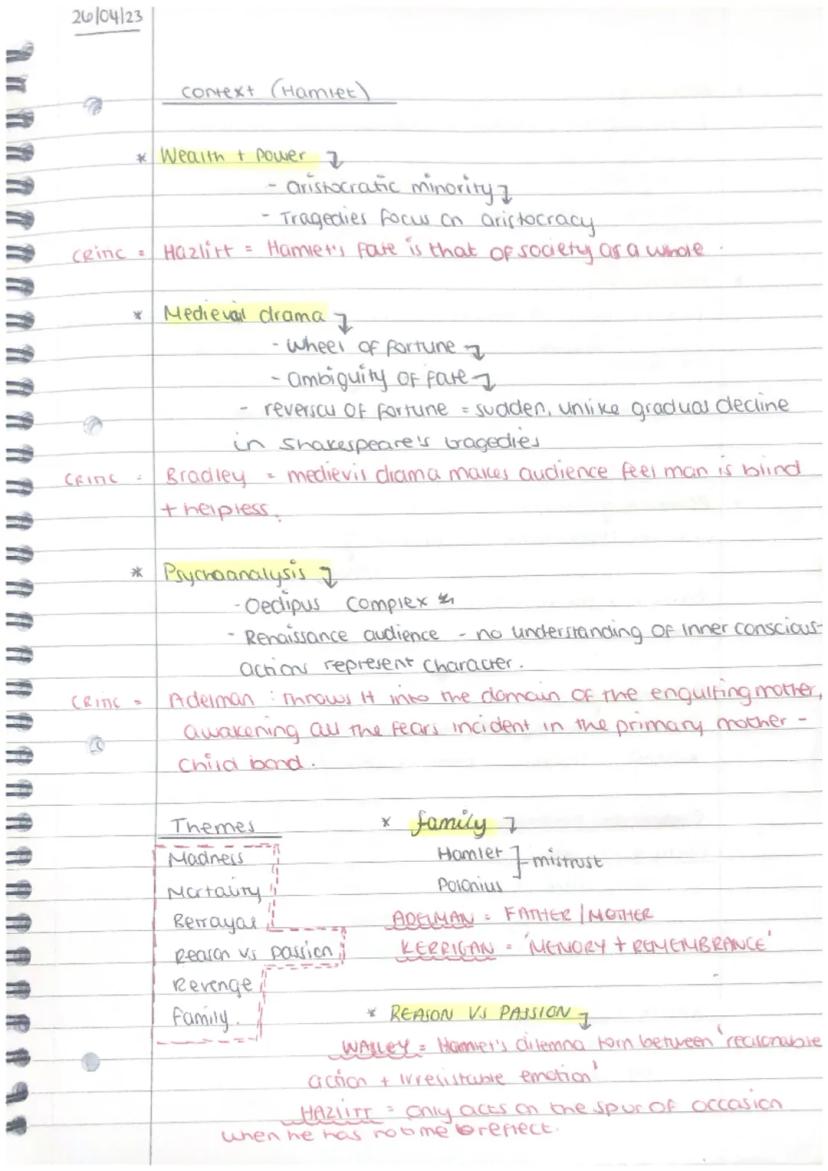 26/04/23
Context (Hamlet)
* Wealth + power
- aristocratic minority
- Tragedies focus on aristocracy
CRITIC = Hazlitt = Hamlet's fate is that of society as a whole.
* Medieval drama
- wheel of fortune
- ambiguity of fate
- reversal of fortune = sudden, unlike gradual decline
in Shakespeare's tragedies
CRITIC = Bradley = medievil drama makes audience feel man is blind
+ helpless.
* Psychoanalysis
- Oedipus complex
- Renaissance audience - no understanding of inner conscious-
actions represent character.
CRITIC = Adelman : throws H into the domain of the engulfing mother,
awakening all the fears incident in the primary mother -
child bond.
Themes
Madness
Mortality
Betrayal
Reason vs passion
Revenge
Family.
* family
Hamlet
Polonius
mistrust
ADELMAN = FATHER / MOTHER
KERRIGAN = 'MEMORY + REMEMBRANCE'
* REASON VS PASSION
WALLEY = Hamlet's dilemma torn between 'reasonable
action + irresistable emotion'
HAZLITT = only acts on the spur of occasion
when he has no time to reflect.